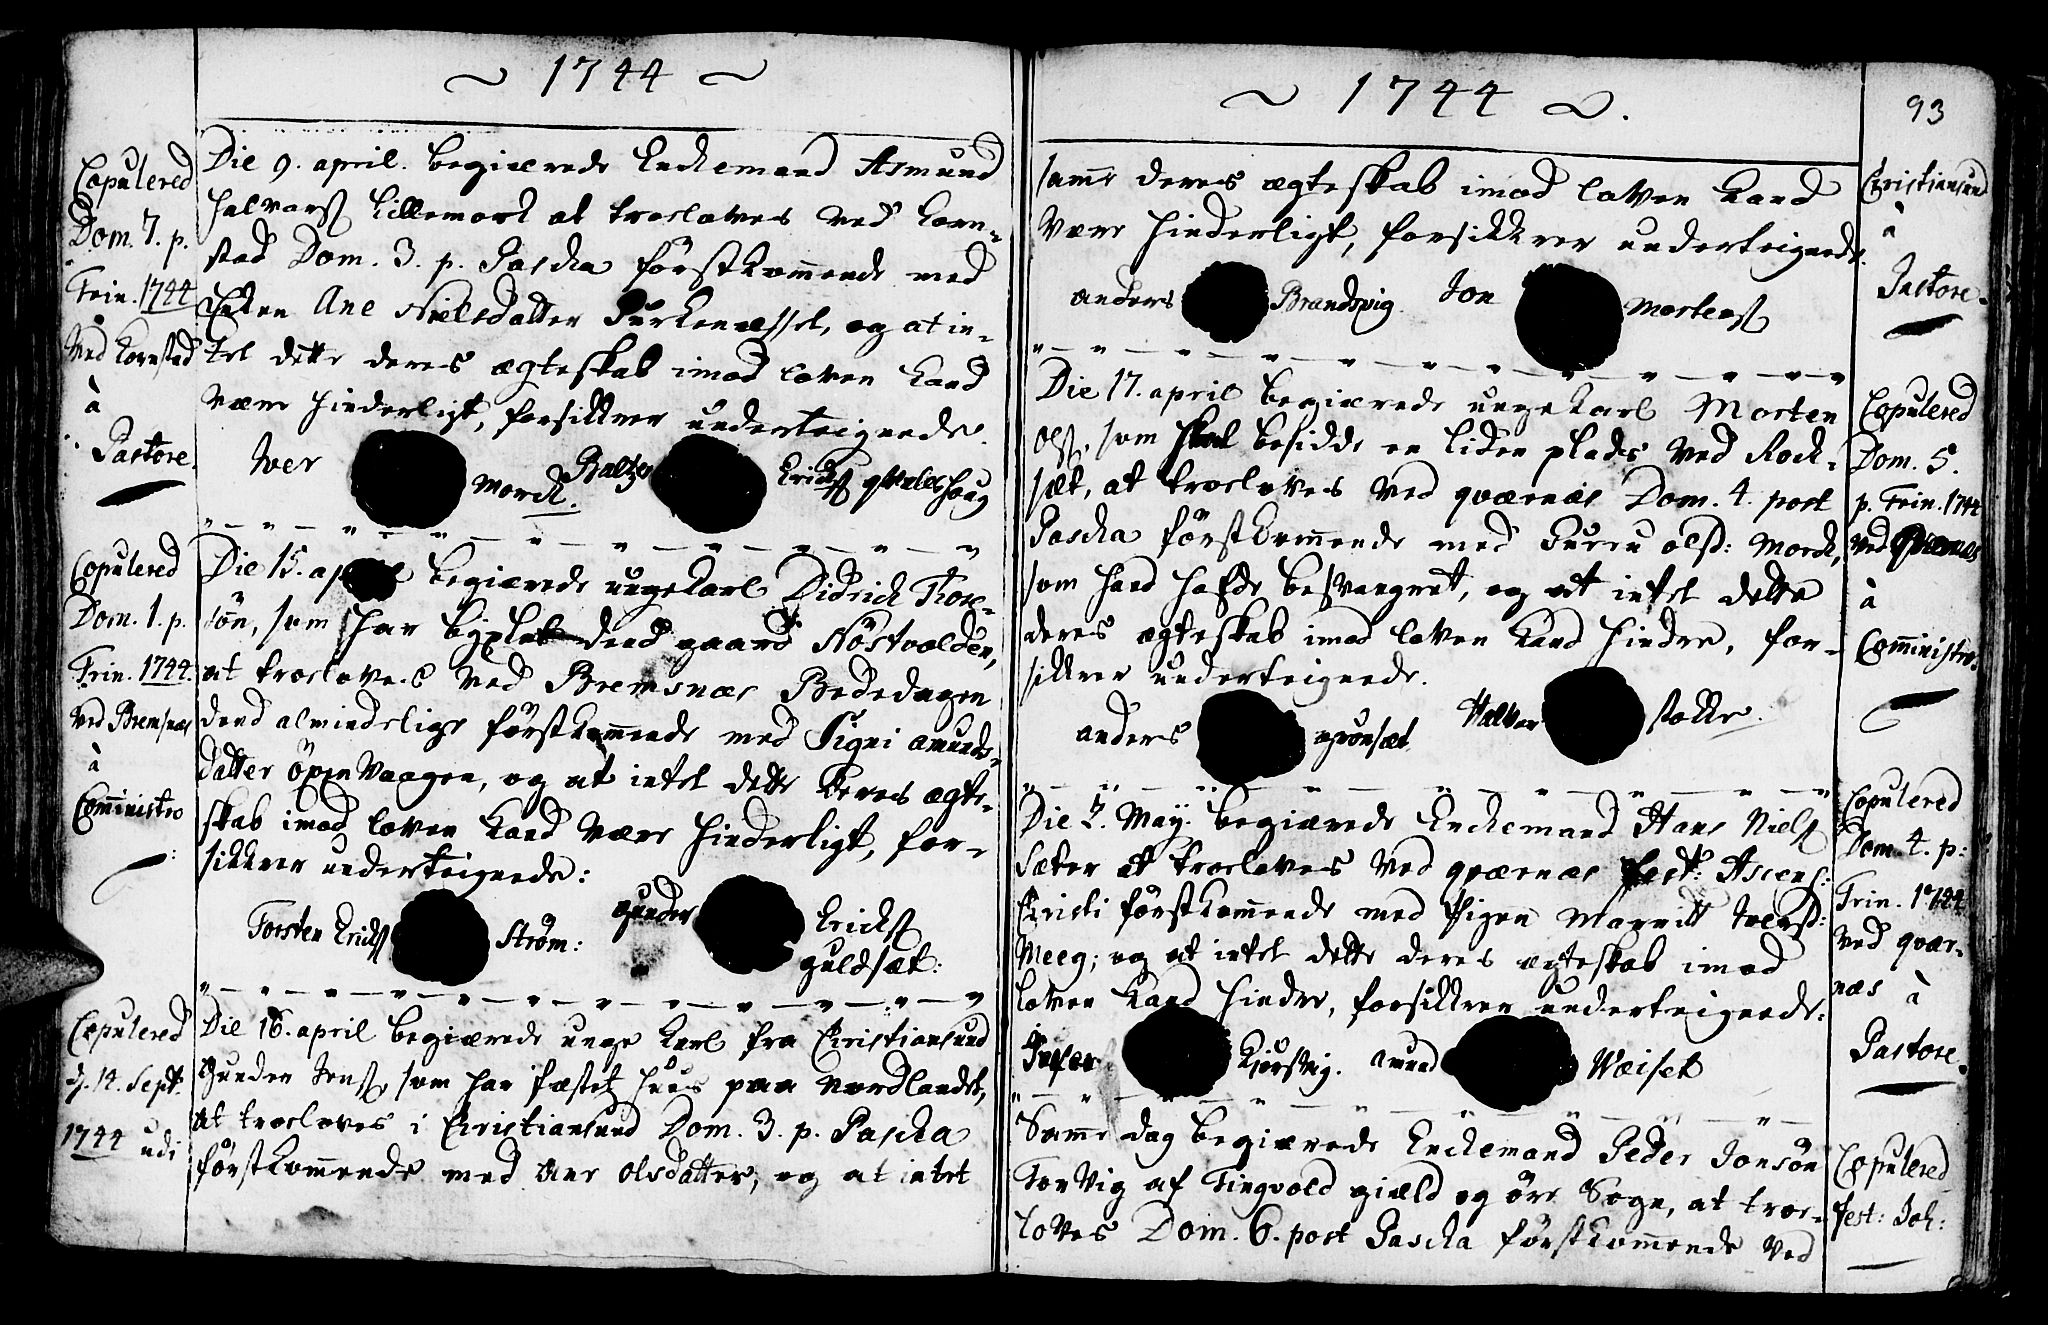 ~ 1744 ~
Copulered
Dom. 7. p.
Trin. 1744
Ved Kornstad
à
Pastore.
Die 9. april. begiærede Enckemand Asmund
Halvors: Lillemork at troeloves ved Korn-
stad Dom. 3. p. Pascha förstkommende med
Enken Ane Nielsdatter, og at in-
tet dette deres ægteskab imod loven kand
være hinderligt, forsikkrer underteignede.
Iver Morck. Baltzer Ericks:
Copulered
Dom. 1. p.
Trin. 1744.
Ved Bremsnæs
à
Comministro
Die 15. april begiærede ungekarl Didrich Thor-
sön, som har bÿxlet dend gaard Röstvolden,
at troeloves ved Bremsnæs Bededagen
dend almindelige förstkommende med Signi amunds-
datter öpenvaagen, og at intet dette deres ægte-
skab imod loven kand være hinderligt, for-
sikkrer underteignede:
Torsten Ericks: Ström: gunder Ericks:
guldsæt:
Copulered
d. 14. Sept:
1744 udi
Die 16. april begiærede unge Karl fra Christiansund
Gunder Jens: som har fæstet huus paa Nordlandet,
at troeloves i Christiansund Dom. 3. p. Pascha
förstkommende med Ane Olsdatter, og at intet
~ 1744 ~.
93
samme deres ægteskab imod loven kand
være hinderligt, forsikkrer underteignede.
anders Brandsvig. Jon Mortens:
Christiansund
à
Pastore.
Die 17. april begiærede ungekarl Morten
Ols: som skal besidde en liden plads ved Rock-
sæt, at troeloves ved qværnæs Dom. 4. post
Pascha förstkommende med Gurru olsd: Morck,
som hand hafde besvangret, og at intet dette
deres ægteskab imod loven kand hindre, for-
sikkrer underteignede.
anders grönsæt Halvor stokke.
Copulered
Dom. 5.
p. Trin. 1744
Ved Qværnæs
à
Comministro.
Die 2. May. begiærede Enckemand Hans Niels:
Sæter at troeloves ved qværnæs Fest: Ascens:
Christi förstkommende med Pigen Marritt Iversd:
Meeg; og at intet dette deres ægteskab imod
loven kand hindre, forsikkrer underteignede:
Kiörsvig. Amund Wæiset
Copulered
Dom. 4. p:
Trin. 1744
Ved qvær-
næs à
Pastore.
Samme dag begiærede Enckemand Peder Jonsön
Torvig af Tingvold gield og öre Sogn, at troe-
loves Dom. 6. post Pascha förstkommende ved
Copulered
fest: Joh: